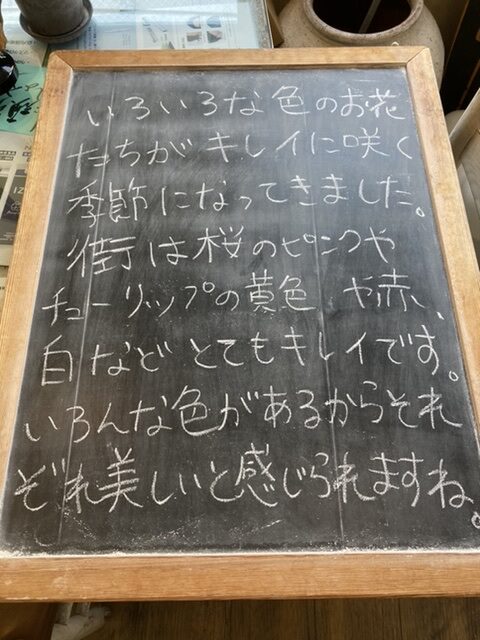 いろいろな色のお花
たちがキレイに咲く
季節になってきました。
街は桜のピンクや
チューリップの黄色 や赤、
白などとてもキレイです。
いろんな色があるからそれ
ぞれ美しいと感じられますね。